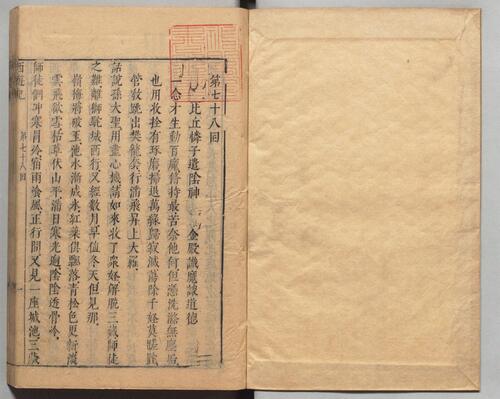 第七十八回
比丘憐子遣陰神　金殿識魔談道德
一念才生動百魔修持最苦奈他何但憑洗滌無塵垢
也用收拴有琢磨掃退萬緣歸寂滅蕩除千妖莫蹉跎
管教跳出樊籠套行滿飛昇上大羅
話說孫大聖用盡心機請如來收了衆妖解脫三藏師徒
之難離獅駝城西行又經數月早值冬天但見那
嶺梅將破玉池水漸成冰紅葉俱飄落青松色更新淡
雲飛欲雪枯草伏山平滿目寒光迥陰陰透骨冷
師徒們冲寒冒冷宿雨飡風正行間又見一座城池三藏
西遊記
第七十八回
一